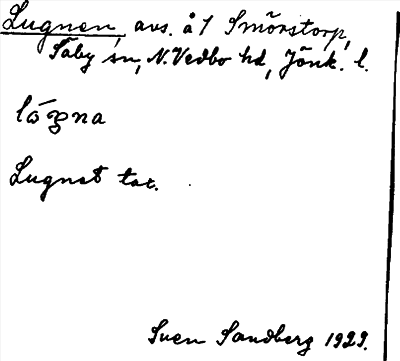 Lugnen, avs. å 1 Smörstorp,
Säby sn, N. Vedbo hd, Jönk. l.
lógna
Lugnet tax.
Sven Sandberg 1929.